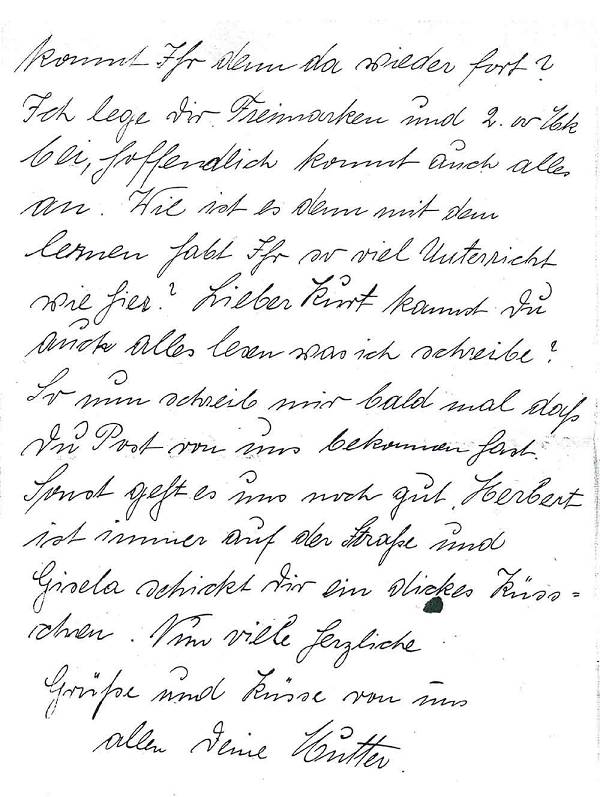 kommt Ihr denn da wieder fort?
Ich lege Dir Freimarken und 2.00 Mk
bei, hoffendlich kommt auch alles
an. Wie ist es denn mit dem
lernen habt Ihr so viel Unterricht
wie hier? Lieber Kurt kannst Du
auch alles lesen was ich schreibe?
So nun schreib mir bald mal daß
Du Post von uns bekommen hast.
Sonst geht es uns noch gut. Herbert
ist immer auf der Straße und
Gisela schickt Dir ein dickes Küss=
chen. Nun viele herzliche
Grüße und Küsse von uns
allen Deine Mutter.